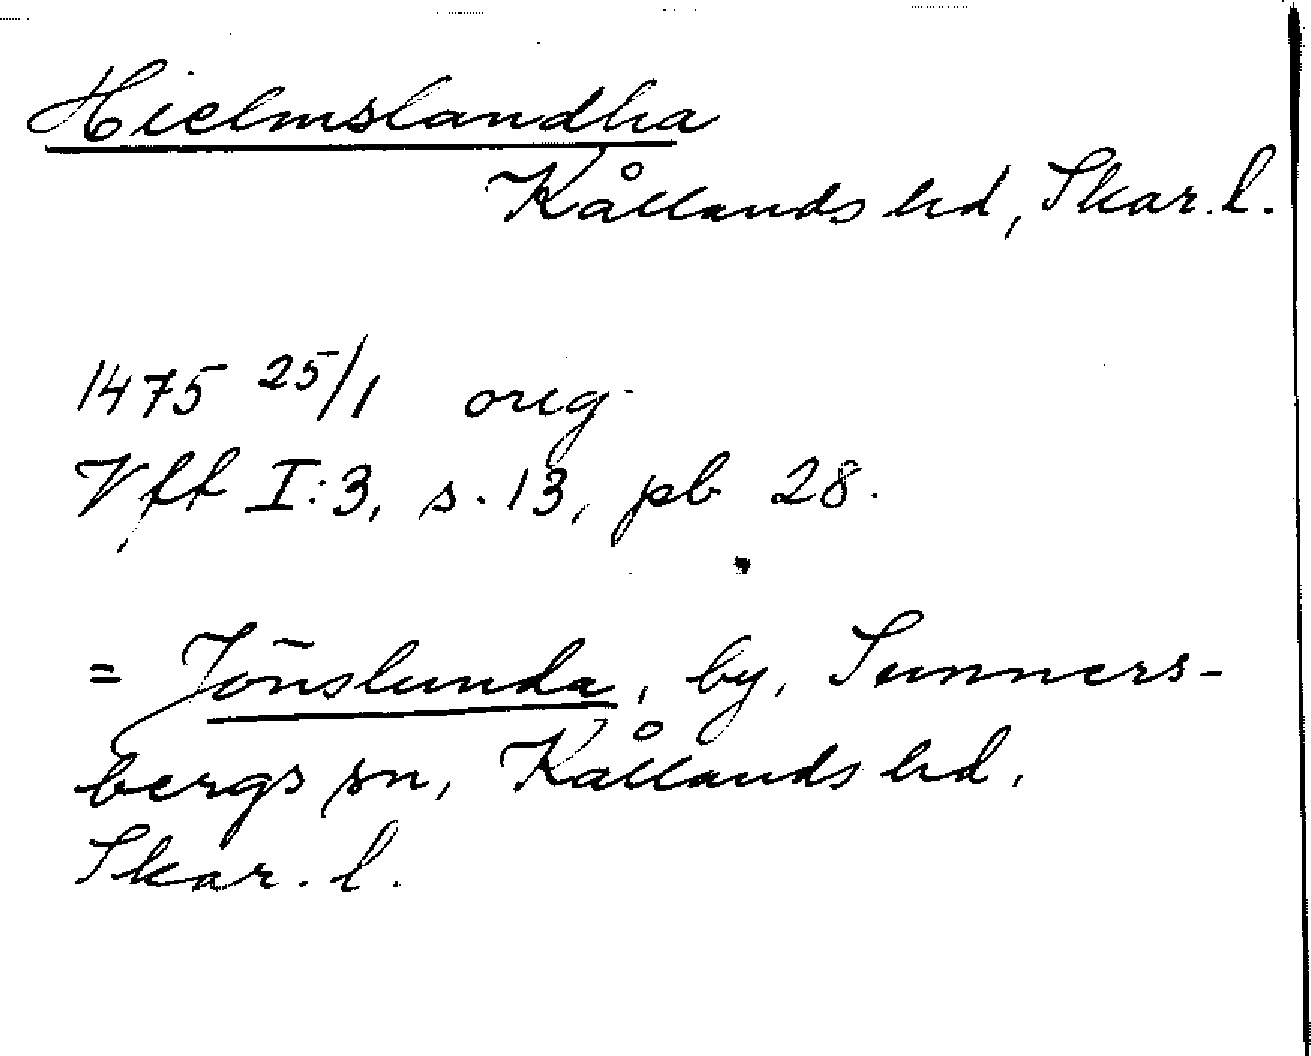 Hielmslandha
Kållands hd, Skar. l.
1475 25/1 orig.
Vff I:3, s. 13, pb 28.
= Jönslunda, by, Sunners-
bergs sn, Kållands hd,
Skar. l.